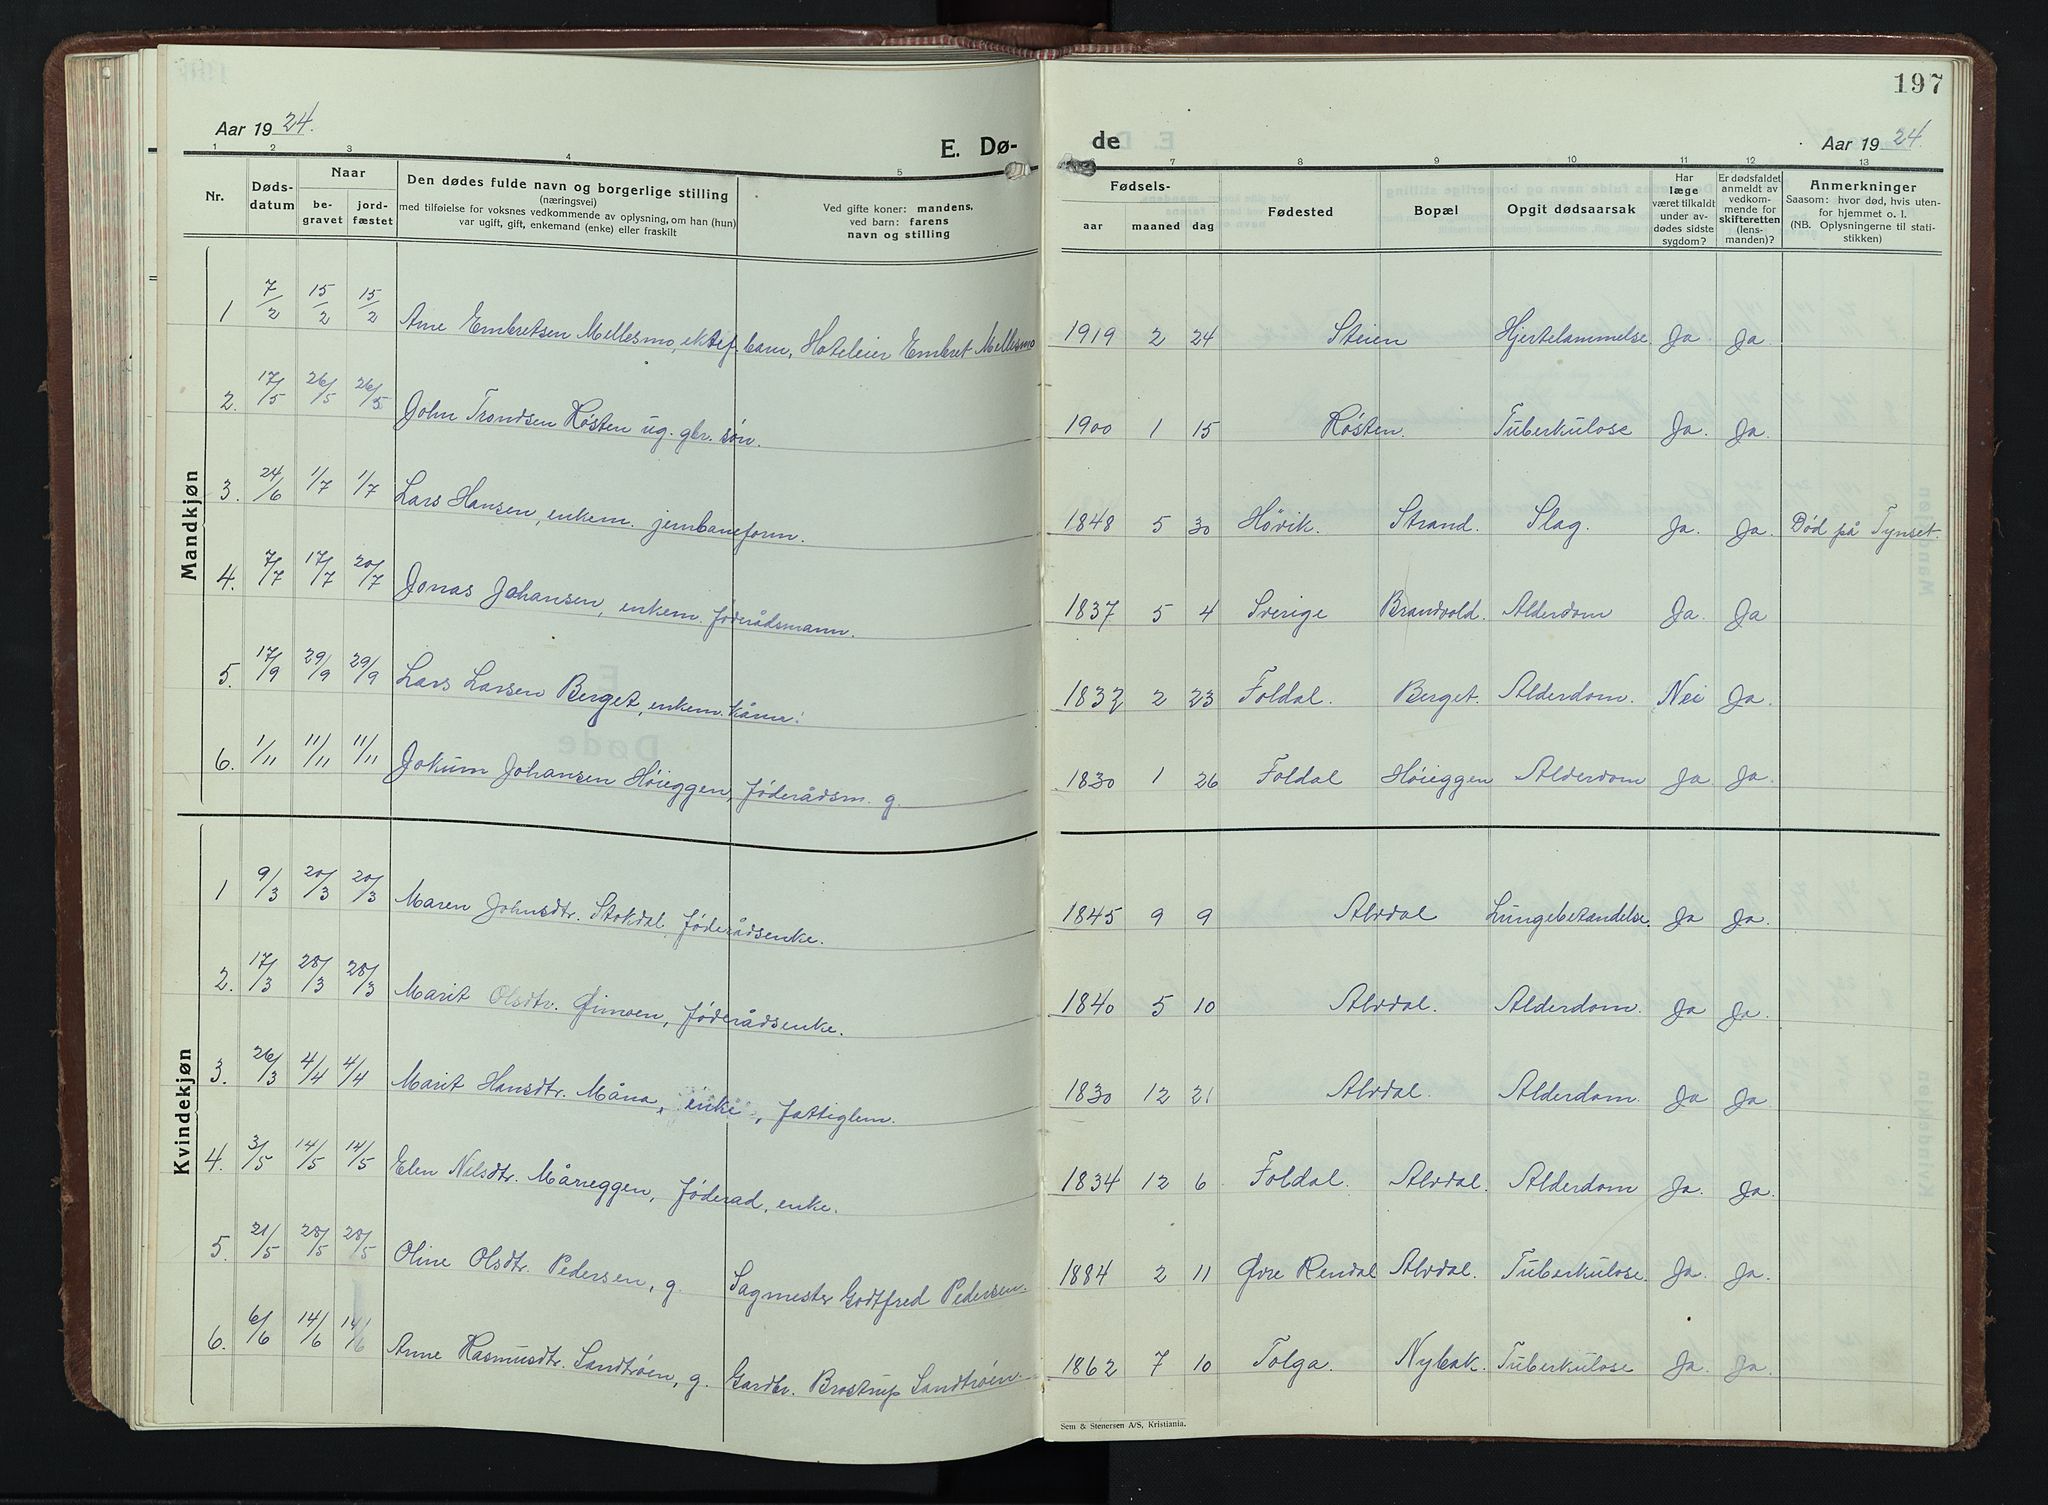 Aar 1924.
E. Dø-
1 2 3 4 5
Nr.
Dødsdatum
Naar
begravet
jordfæstet
Den dødes fulde navn og borgerlige stilling
(næringsvei)
med tilføielse for voksnes vedkommende av oplysning, om han (hun)
var ugift, gift, enkemand (enke) eller fraskilt
Ved gifte koner: mandens,
ved barn: farens
navn og stilling
Mandkjøn
1 7/2 15/2 15/2 Arne Embretsen Mellesmo, ektef. barn, Hoteleier Embret Mellesmo
2. 17/5 26/5 26/5 John Trondsen Røsten ug. gbr. søn.
3. 24/6 1/7 1/7 Lars Hansen, enkem. jernbaneform.
4. 7/7 17/7 20/7 Jonas Johansen, enkem. føderådsmann.
5. 17/9 29/9 29/9 Lars Larsen Berget, enkem.
6. 1/11 11/11 11/11 Jokum Johansen Høieggen, føderådsm. g.
Kvindekjøn
1 9/3 20/3 20/3 Maren Johnsdtr. Stokdal, føderådsenke.
2. 17/3 28/3 28/3 Marit Olsdtr. føderådsenke.
3. 26/3 4/4 4/4 Marit Hansdtr. Måna, enke, fattiglem.
4. 3/5 14/5 14/5 Elen Nilsdtr. Måneggen, føderad, enke.
5. 21/5 28/5 28/5 Oline Olsdtr. Pedersen, g. Sagmester Godtfred Pedersen.
6. 6/6 14/6 14/6 Anne Rasmusdtr. Sandtrøen, g. Gardbr. Brostrup Sandtrøen.
197
de
Aar 1924.
7 8 9 10 11 12 13
Fødsels-
aar maaned dag
Fødested
Bopæl
Opgit dødsaarsak
Har
læge
været tilkaldt
under avdødes sidste
sygdom?
Er dødsfaldet
anmeldt av
vedkommende for
skifteretten
(lensmanden)?
Anmerkninger
Saasom: hvor død, hvis utenfor hjemmet o. l.
(NB. Oplysningerne til statistikken)
1919 2 24 Steien Hjertelammelse. Ja. Ja.
1900 1 15 Røsten. Tuberkulose Ja. Ja.
1848 5 30 Høvik. Strand. Slag. Ja. Ja. Død på Tynset.
1837 5 4 Sverige Brandvold. Alderdom Ja. Ja
1832 2 23 Foldal. Berget. Alderdom. Nei Ja.
1830 1 26 Foldal Høieggen Alderdom Ja. Ja.
1845 9 9 Alvdal Lungebetændelse. Ja Ja.
1840 5 10 Alvdal. Alderdom. Ja Ja.
1830 12 21 Alvdal. Alderdom. Ja Ja.
1834 12 6 Foldal. Alvdal. Alderdom Ja. Ja.
1884 2 11 Øvre Rendal Alvdal. Tuberkulose. Ja. Ja.
1862 7 10 Tolga. Nybak. Tuberkulose Ja. Ja.
Sem & Stenersen A/S, Kristiania.